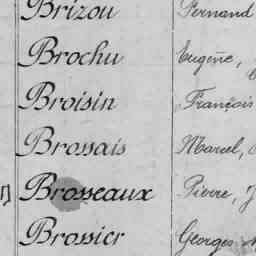 Brizou Fernand
Brochu Eugène,
Broisin François
Brossais Marcel,
Brosseaux Pierre, J
Brossier Georges